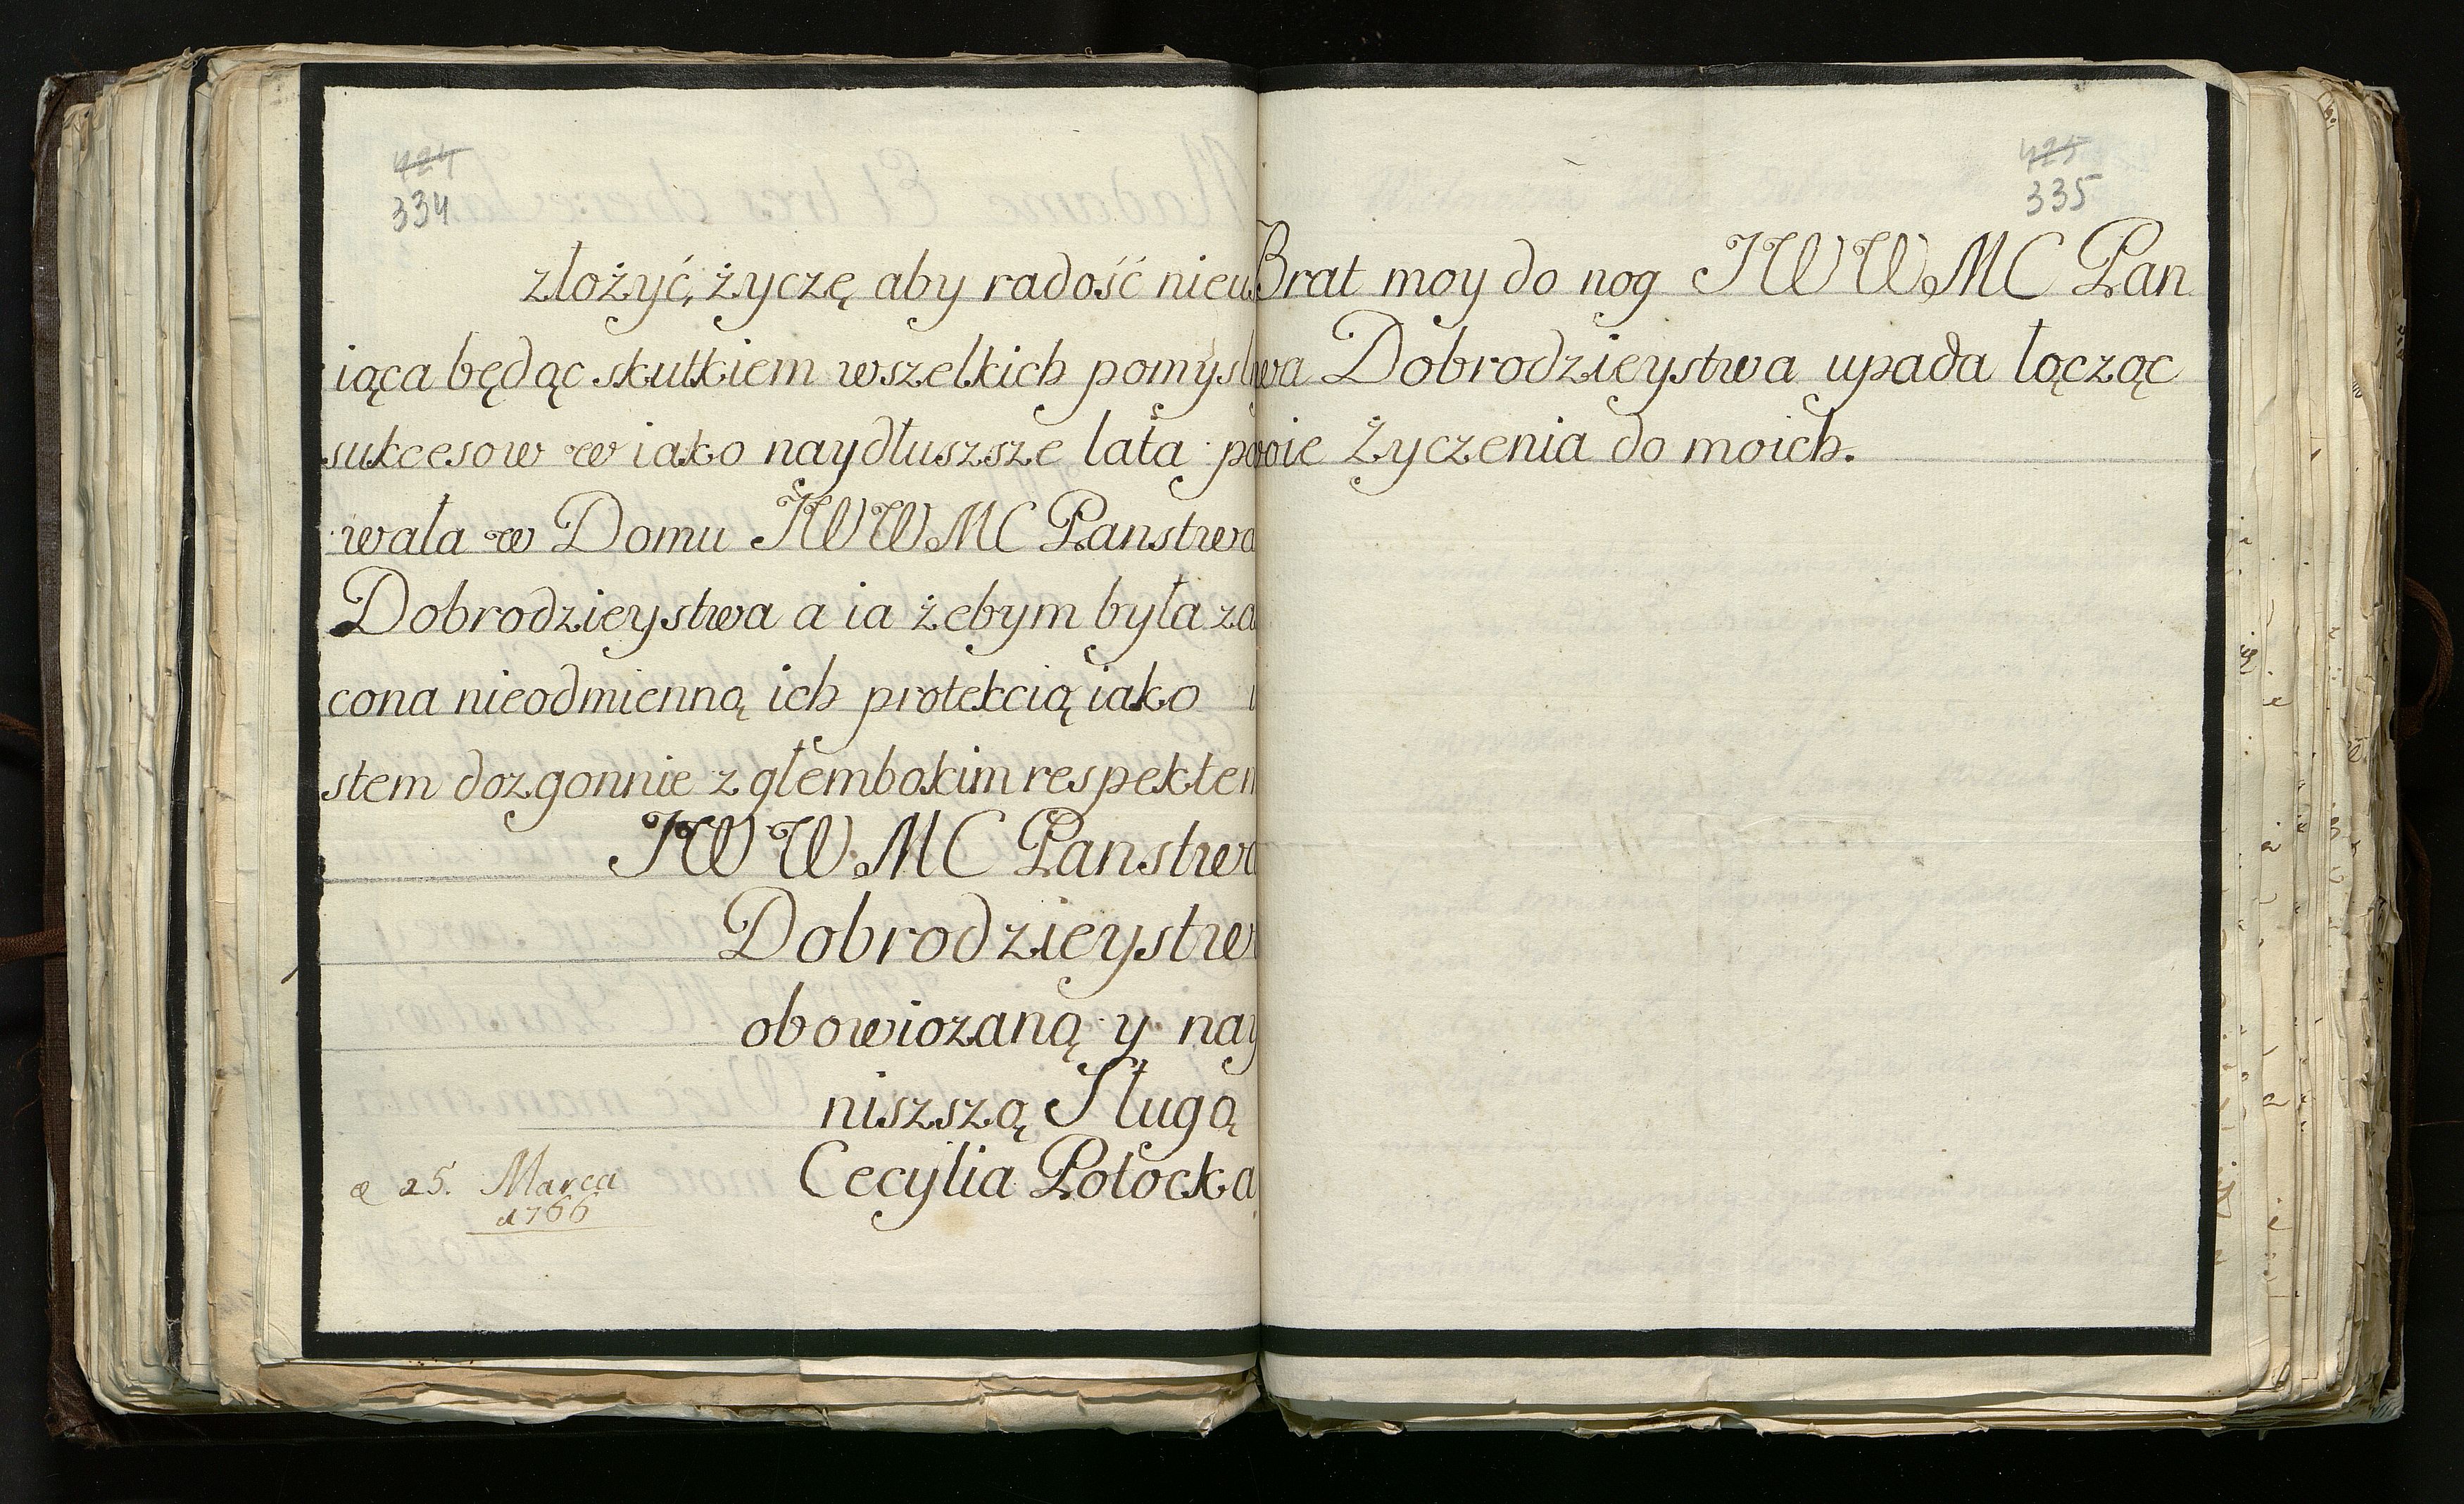 424
334
złożyć, życzę aby radość nieu
iąca będąc skutkiem wszelkich pomyśl
sukcesow w iako naydłuszsze lata po
wała w Domu JWWMC Panstwa
Dobrodzieystwa a ia żebym była za
cona nieodmienną ich protekcią iako
stem dozgonnie z głembokim respektem
JWWMC Panstwa
Dobrodzieystw
obowiozaną y nay
niszszą Sługą
Cecylia Potocka
25. Marca
1766
425
335
Brat moy do nog JWWMC Pan
wa Dobrodzieystwa upada łącząc
woie Życzenia do moich.